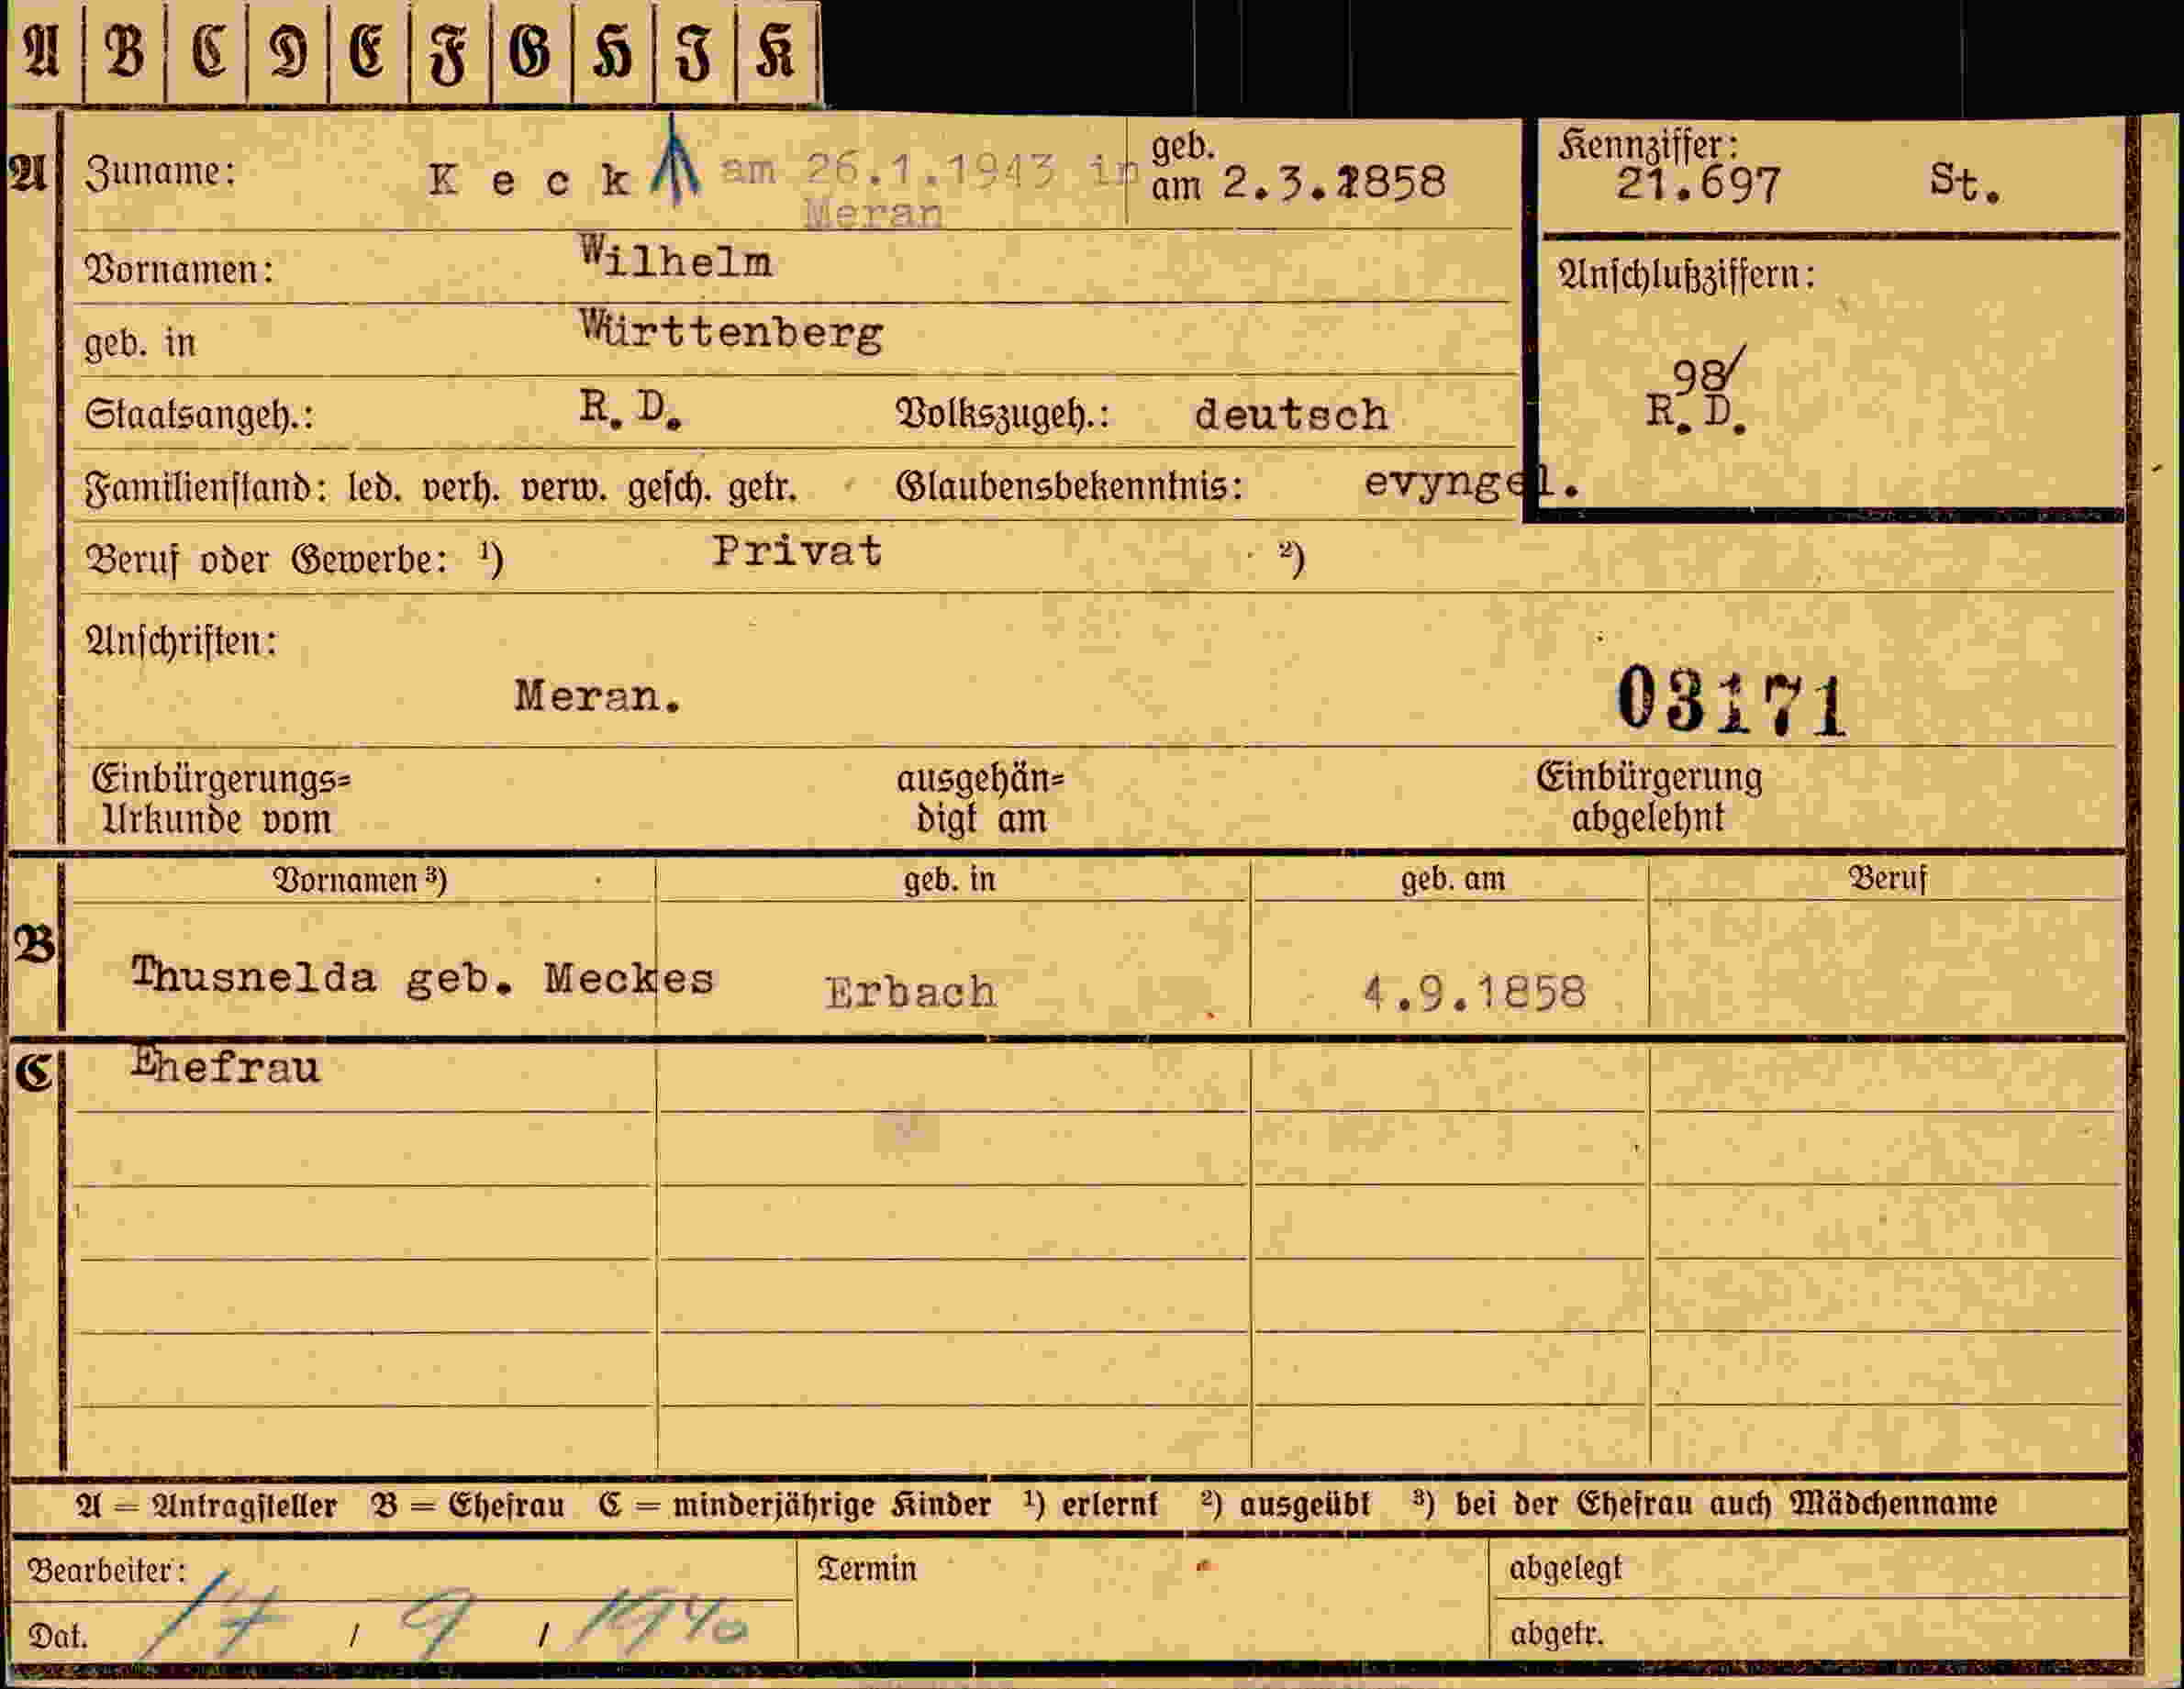 A B C D E F G H I K
A Zuname: Keck am 26.1.1943 in geb. am 2.3.1858 Kennziffer: 21.697 St.
Meran
Vornamen: Wilhelm Anschlußziffern:
geb. in Württenberg
98/
Staatsangeh.: R.D. Volkszugeh.: deutsch R.D.
Familienstand: led. verh. verw. gesch. getr. Glaubensbekenntnis: evyngel.
Beruf oder Gewerbe: ¹) Privat ²)
Anschriften:
Meran. 03171
Einbürgerungs= ausgehän= Einbürgerung
Urkunde vom digt am abgelehnt
Vornamen ³) geb. in geb. am Beruf
B Thusnelda geb. Meckes Erbach 4.9.1858
C Ehefrau
A = Antragsteller B = Ehefrau C = minderjährige Kinder ¹) erlernt ²) ausgeübt ³) bei der Ehefrau auch Mädchenname
Bearbeiter: Termin abgelegt
Dat. 17 / 9 / 1940 abgetr.